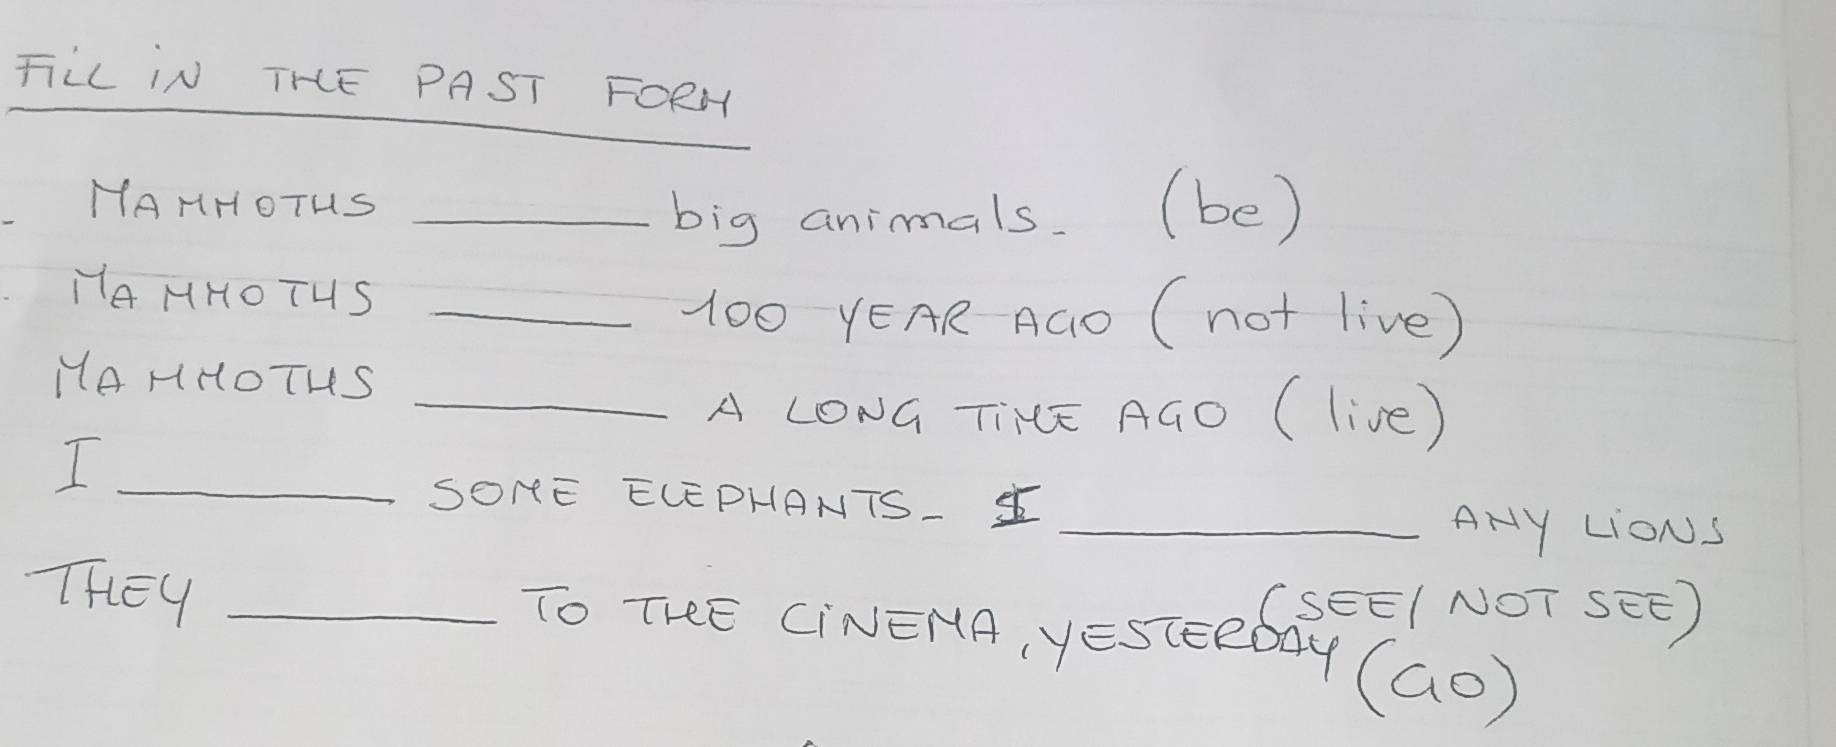 FiLL iN THE PAST FORM
- MAMMOTHS ______ big animals. (be)
- MAMMOTHS ______ 100 YEAR AGO (not live)
MAMMOTHS ______ A LONG TiME AGO (live)
I ______ SOME ELEPHANTS. I ______ ANY LiONS
(SEE/ NOT SEE)
THEY ______ TO THE CiNEMA, YESTERDAY (GO)